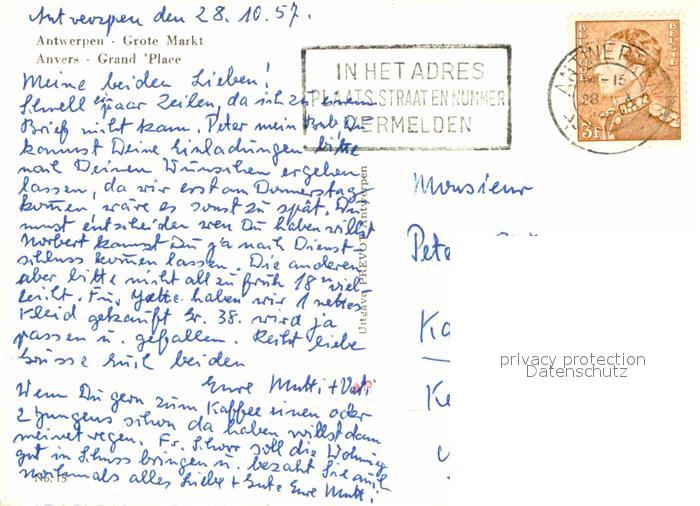 Antwerpen den 28.10.57.
Antwerpen · Grote Markt
Anvers · Grand 'Place
Meine beiden Lieben!
Schnell paar Zeilen, da ich zu einem
Brief nicht kam. Peter mein Bub Du
kannst Deine Einladungen bitte
nach Deinen Wünschen ergehen
lassen, da wir erst am Donnerstag
kommen wäre es sonst zu spät. Du
musst entscheiden wen Du haben willst
Norbert kannst Du ja nach Dienst-
schluss kommen lassen. Die anderen
aber bitte nicht all zu früh 18ʰ viel-
leicht. Für Yette haben wir 1 nettes
Kleid gekauft Gr. 38. wird ja
passen u. gefallen. Recht liebe
Grüsse Euch beiden
Eure Mutti + Vati
Wenn Du gern zum Kaffee einen oder
2 Jungens schon da haben willst dann
meinetwegen. Fr. soll die Wohnung
gut in Schuss bringen u. bezahl Sie auch
nochmals alles Liebe + Gute Eure Mutti
No. 15
Uitgave PREVOT Antwerpen
IN HET ADRES
PLAATS STRAAT EN NUMMER
VERMELDEN
ANTWERPEN
28
BELGIE
BELGIQUE
3F
Monsieur
Pete
Ka
Ke
privacy protection
Datenschutz